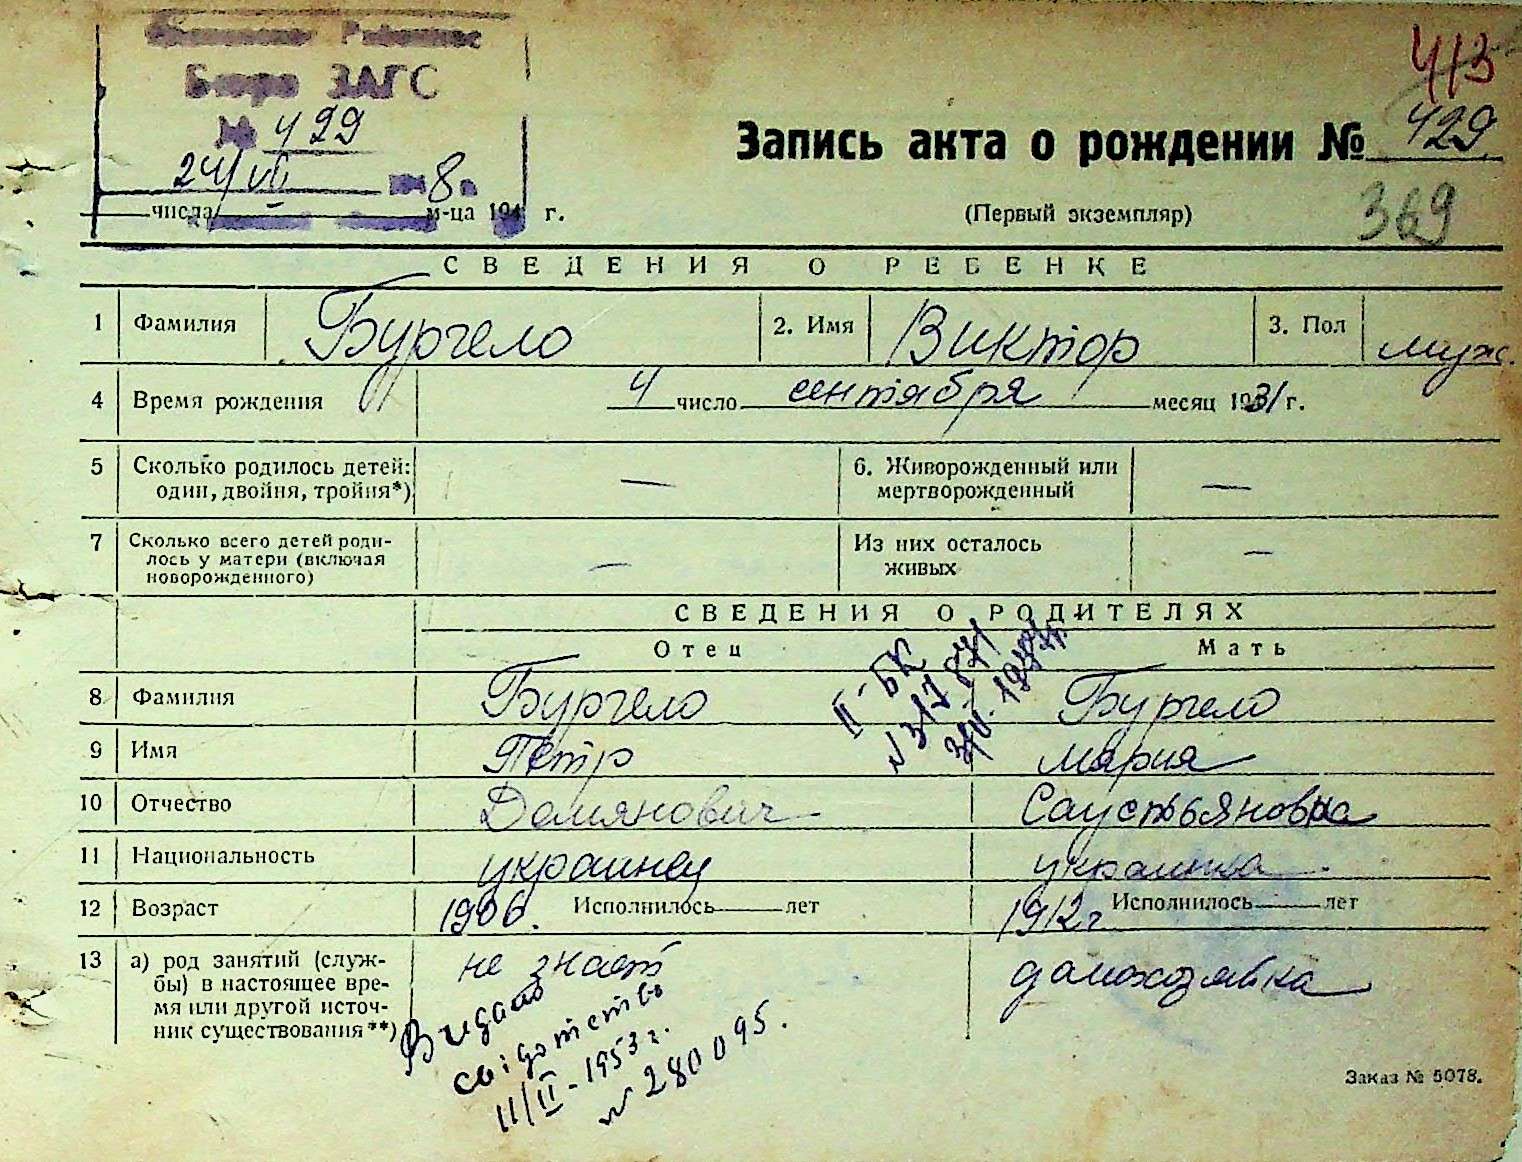 Бюро ЗАГС
№ 429
24/VII 1948 г.
числа м-ца 194 г.
413
Запись акта о рождении № 429
(Первый экземпляр)
369
СВЕДЕНИЯ О РЕБЕНКЕ
1 Фамилия Бургело 2. Имя Виктор 3. Пол муж.
4 Время рождения 4 число сентября месяц 1931 г.
5 Сколько родилось детей: один, двойня, тройня*) — 6. Живорожденный или мертворожденный —
7 Сколько всего детей роди-
лось у матери (включая
новорожденного) — Из них осталось живых —
СВЕДЕНИЯ О РОДИТЕЛЯХ
Отец Мать
8 Фамилия Бургело Бургело
9 Имя Петр Мария
10 Отчество Домянович Саустьяновна
11 Национальность украинец украинка
12 Возраст 1906. Исполнилось лет 1912 г Исполнилось лет
13 а) род занятий (служ-
бы) в настоящее вре-
мя или другой источ-
ник существования**) не знает домохозяйка
II-БК
№ 317871
Видано
свідотство
11/II-1953 г.
№ 280095.
Заказ № 5078.